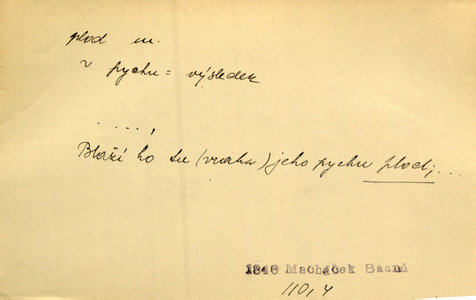 plod m.
v pychu = výsledek
. . . . . ,
Blaží ho tu (vraha) jeho pychu plod; ...
1846 Macháček Básně
110, 4